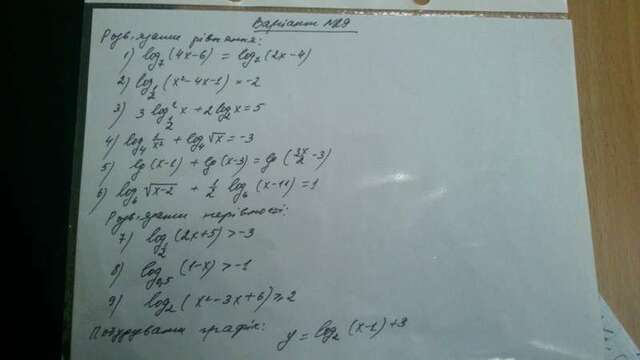 Варіант №29
Розв'язати рівняння:
1) log₂(4x-6) = log₂(2x-4)
2) log_{1/2}(x²-4x-1) = -2
3) 3log²_{1/2}x + 2log₂x = 5
4) log₄ 1/x² + log₄√x = -3
5) lg(x-1) + lg(x-3) = lg(3x/2 -3)
6) log₆√(x-2) + 1/2 log₆(x-11) = 1
Розв'язати нерівності:
7) log_{1/2}(2x+5) > -3
8) log_{0,5}(1-x) > -1
9) log₂(x²-3x+6) ≥ 2
Побудувати графік: y = log₂(x-1)+3